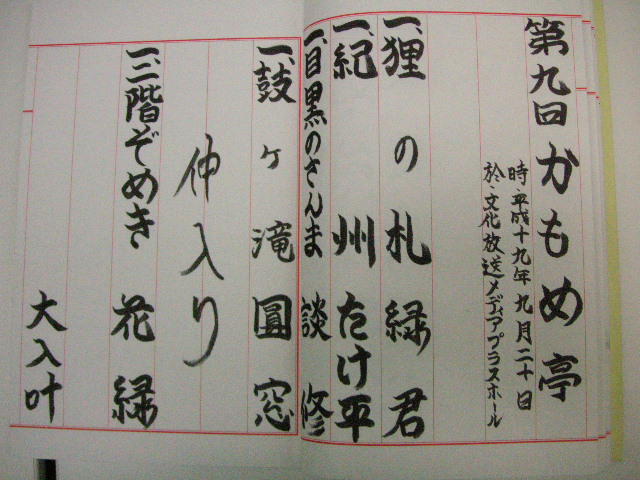 第九回かもめ亭
時・平成十九年九月二十日
於・文化放送メディアプラスホール
一、狸の札 緑君
一、紀州 たけ平
一、目黒のさんま 談修
一、鼓ヶ滝 圓窓
仲入り
一、二階ぞめき 花緑
大入叶